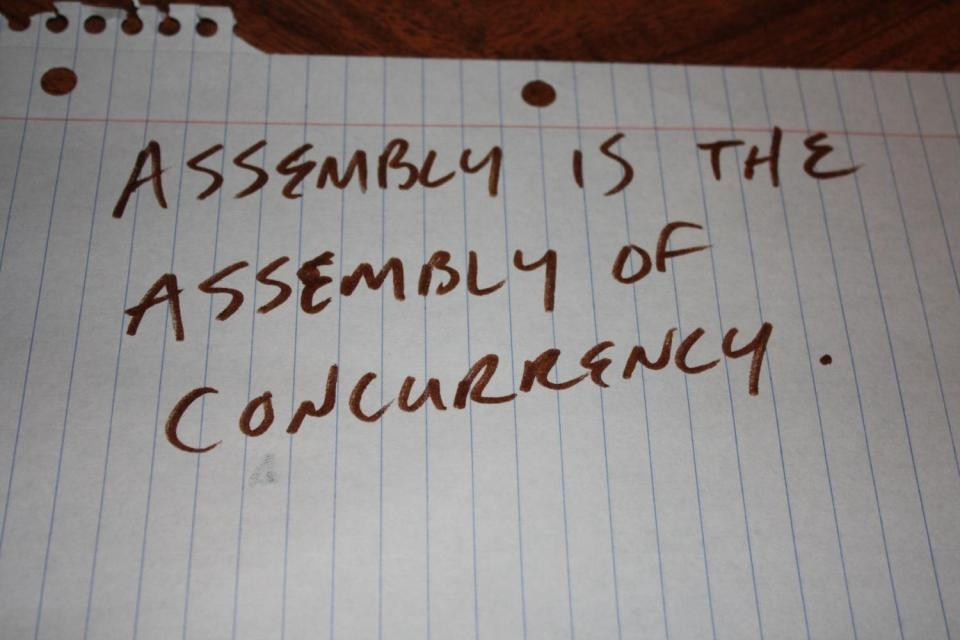 ASSEMBLY IS THE
ASSEMBLY OF
CONCURRENCY.